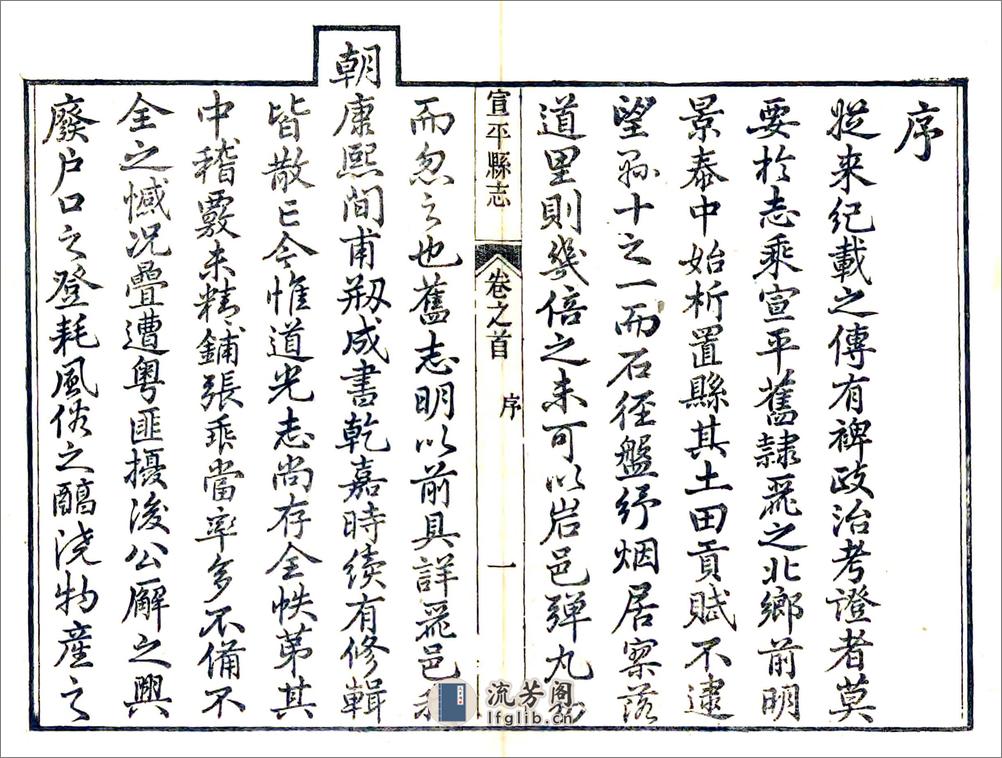 序
從來紀載之傳有裨政治考證者莫
要於志乘宣平舊隸麗之北鄉前明
景泰中始析置縣其土田貢賦不逮
望縣十之一而石徑盤紆烟居寥落
道里則幾倍之未可以岩邑弹丸
宣平縣志 卷之首 序 一
而忽之也舊志明以前具詳麗邑
朝康熙間甫剏成書乾嘉時續有修輯
皆散亡今惟道光志尚存全帙第其
中稽覈未精鋪張乖當率多不備不
全之憾况疊遭粵匪擾後公廨之興
廢户口之登耗風俗之醕澆物產之
流芳阁
lfglib.cn